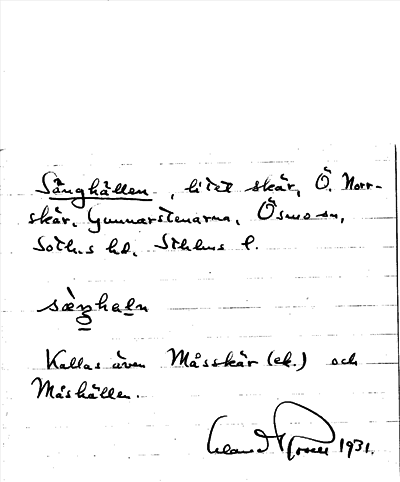 Sånghällen, litet skär, Ö. Norr-
skär, Gunnarstenarna, Ösmo sn,
Soth.s hd, Sthlms l.
sæŋhaln
Kallas även Måsskär (ek.) och
Måshällen.
1931.